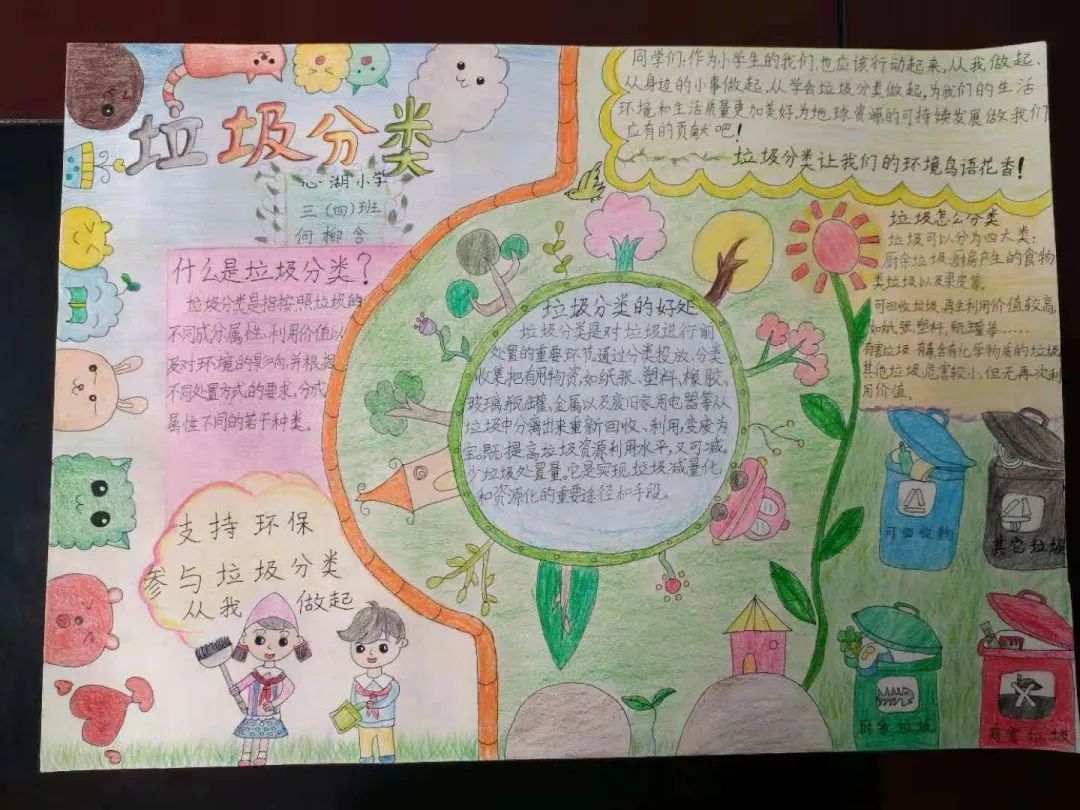 垃圾分类
心湖小学
三(四)班
何柳含
什么是垃圾分类?
垃圾分类是指按照垃圾的
不同成分属性、利用价值以
及对环境的影响,并根据
不同处置方式的要求,分成
属性不同的若干种类。
支持环保
参与垃圾分类
从我做起
同学们,作为小学生的我们,也应该行动起来,从我做起、
从身边的小事做起,从学会垃圾分类做起,为我们的生活
环境和生活质量更加美好,为地球资源的可持续发展做我们
应有的贡献吧!
垃圾分类让我们的环境鸟语花香!
垃圾分类的好处
垃圾分类是对垃圾进行前
处置的重要环节,通过分类投放、分类
收集,把有用物资,如纸张、塑料、橡胶、
玻璃瓶罐、金属以及废旧家用电器等从
垃圾中分离出来重新回收、利用,变废为
宝。既提高垃圾资源利用水平,又可减
少垃圾处置量。它是实现垃圾减量化
和资源化的重要途径和手段。
垃圾怎么分类
垃圾可以分为四大类:
厨余垃圾,厨房产生的食物
类垃圾以及果皮等。
可回收垃圾,再生利用价值较高,
如纸张,塑料,瓶罐等……
有害垃圾:有毒含有化学物质的垃圾
其他垃圾,危害较小,但无再次利
用价值。
可回收物
其它垃圾
厨余垃圾
有害垃圾